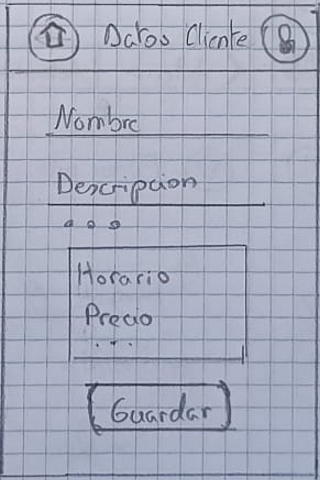 Datos Cliente
Nombre
Descripcion
...
Horario
Precio
...
Guardar